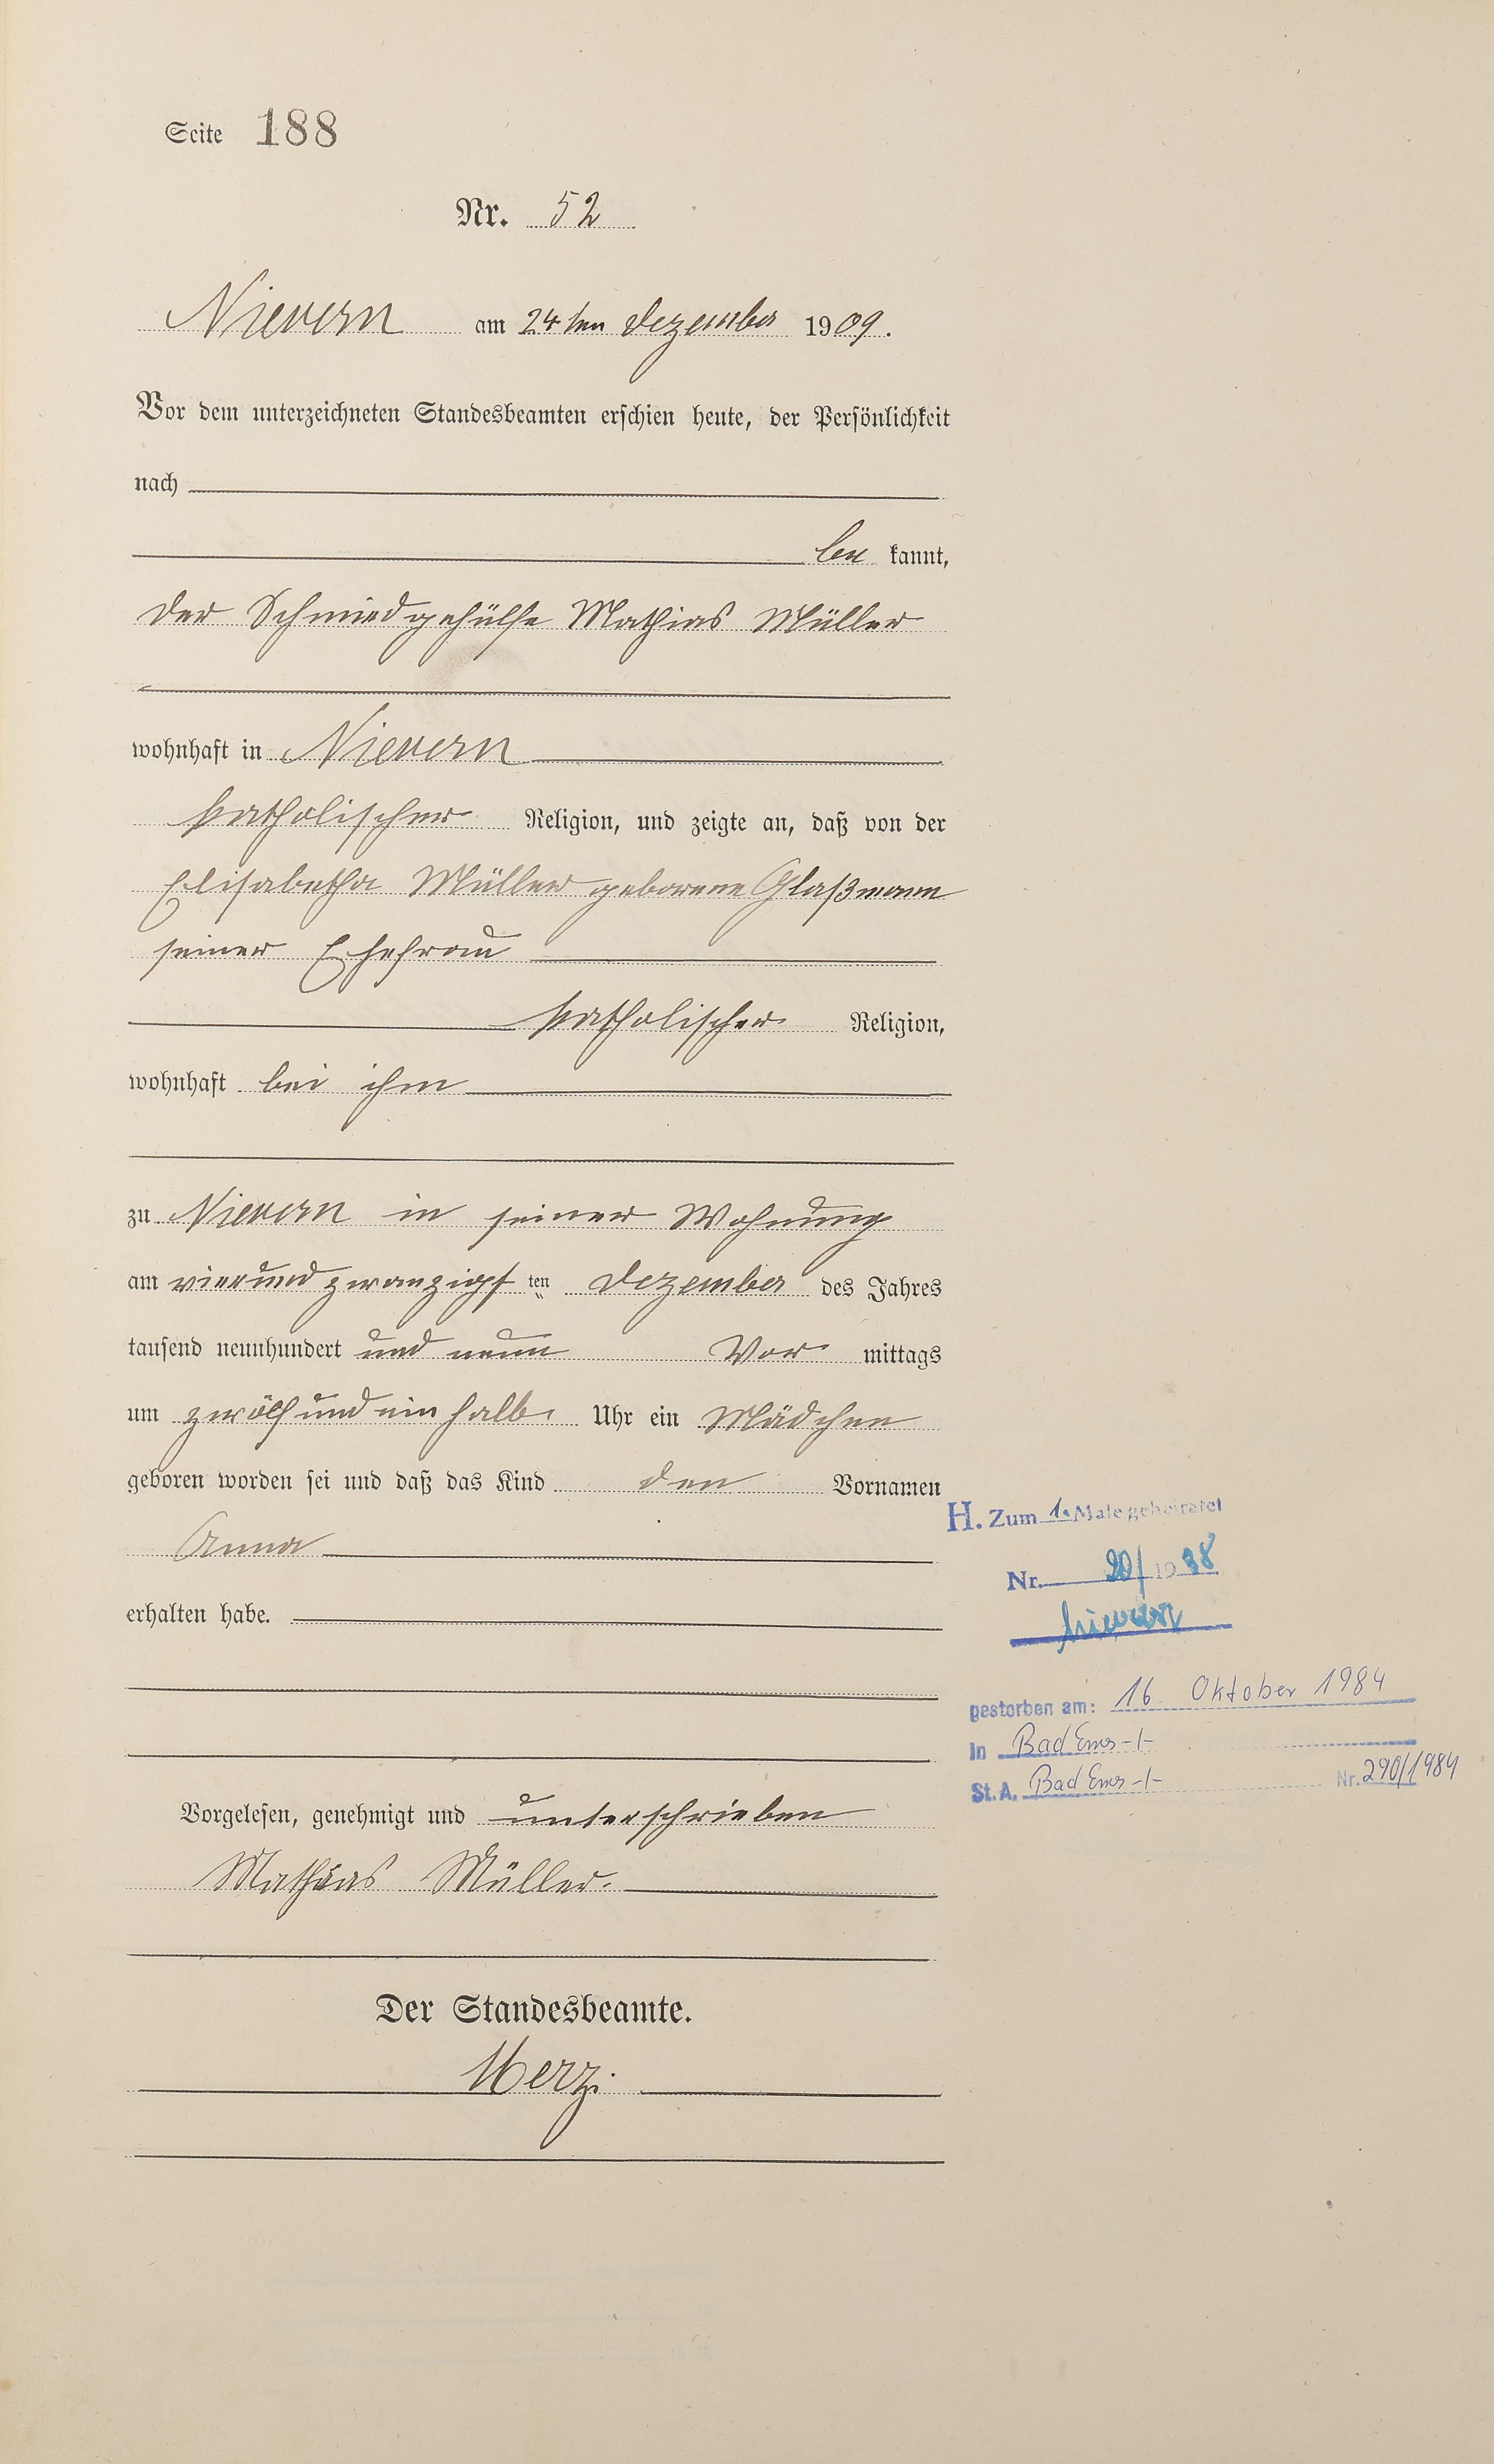 Seite 188
Nr. 52
Nievern am 24ten Dezember 1909.
Vor dem unterzeichneten Standesbeamten erschien heute, der Persönlichkeit
nach
be kannt,
der Schmiedgehülfe Mathias Müller
wohnhaft in Nievern
katholischer Religion, und zeigte an, daß von der
Elisabetha Müller geborene Glaßmann
seiner Ehefrau
katholischer Religion,
wohnhaft bei ihm
zu Nievern in seiner Wohnung
am vierundzwanzigsten Dezember des Jahres
tausend neunhundert und neun Vor mittags
um zwölfundeinhalb Uhr ein Mädchen
geboren worden sei und daß das Kind den Vornamen
Anna
erhalten habe.
Vorgelesen, genehmigt und unterschrieben
Mathias Müller.
Der Standesbeamte.
Merz.
H. Zum 1. Male geheiratet
Nr. 20/1938
Nievern
gestorben am: 16. Oktober 1984
In Bad Ems -/-
St. A. Bad Ems -/- Nr. 290/1984